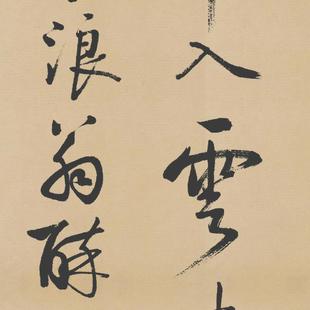 入雲
浪翁醉